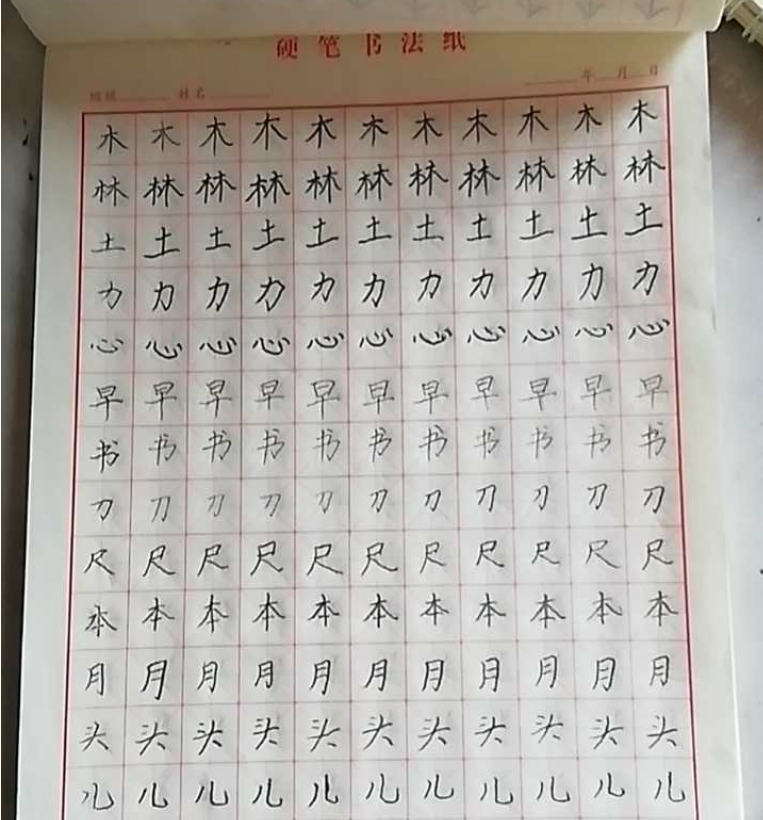 硬笔书法纸
班级 姓名 年 月 日
木 木 木 木 木 木 木 木 木 木 木
林 林 林 林 林 林 林 林 林 林 林
土 土 土 土 土 土 土 土 土 土 土
力 力 力 力 力 力 力 力 力 力 力
心 心 心 心 心 心 心 心 心 心 心
早 早 早 早 早 早 早 早 早 早 早
书 书 书 书 书 书 书 书 书 书 书
刀 刀 刀 刀 刀 刀 刀 刀 刀 刀 刀
尺 尺 尺 尺 尺 尺 尺 尺 尺 尺 尺
本 本 本 本 本 本 本 本 本 本 本
月 月 月 月 月 月 月 月 月 月 月
头 头 头 头 头 头 头 头 头 头 头
儿 儿 儿 儿 儿 儿 儿 儿 儿 儿 儿